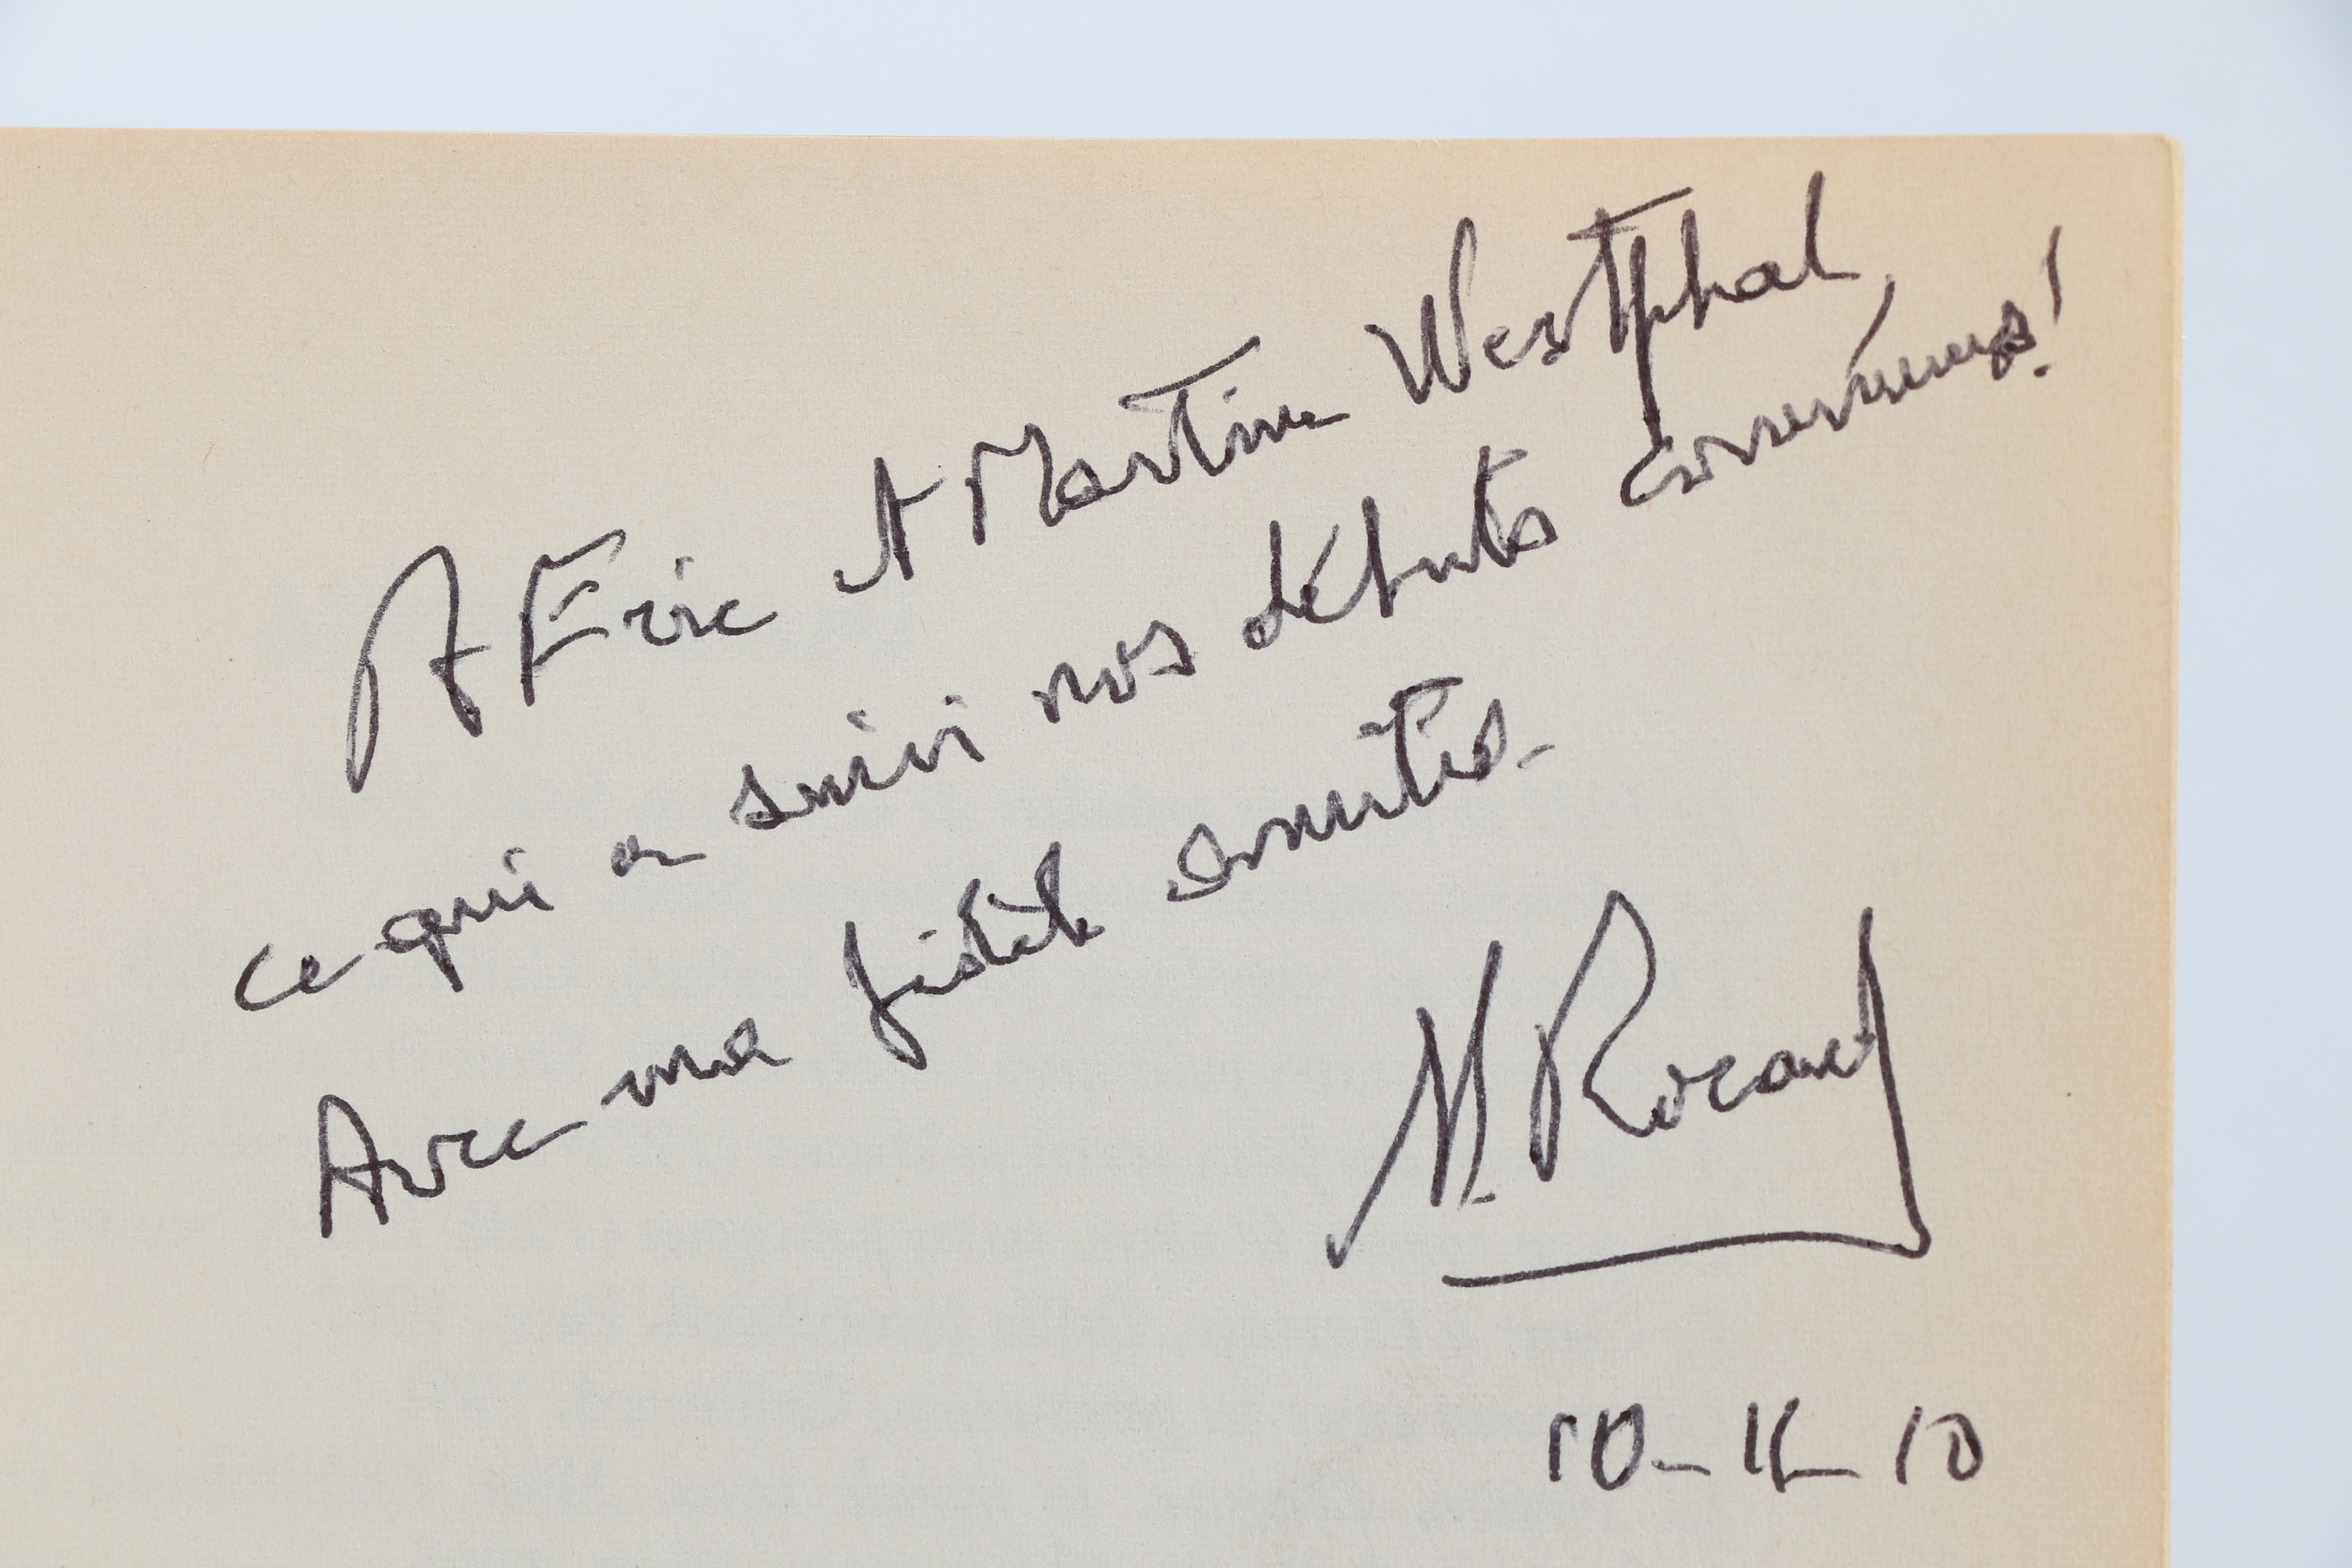 A Eric et Martine Westphal,
ce qui a suivi nos débuts communs!
Avec ma fidèle amitié.
M. Rocard
10-11-10